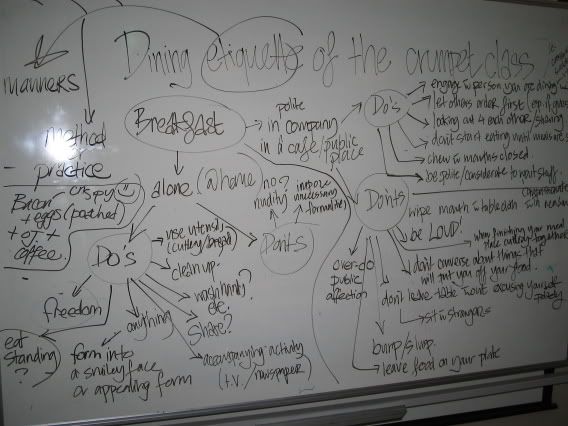 Dining etiquette of the crumpet class
manners
method
practice
Breakfast
polite
in company
in a cafe/public
place
Do's
engage w person you are dining w
let others order first
looking out 4 each other/sharing
don't start eating until meals
chew w mouths closed.
be polite/considerate to wait staff.
crispy
Bacon
+ eggs (poached)
+ OJ +
coffee.
alone (@home)
no?
nudity
impose
unnecessary
formalities
Don'ts
Do's
use utensils
(cutlery/bread)
clean up.
wash hands?
etc.
Share?
accompanying activity
(t.v./newspaper)
anything
form into
a smiley face
or appealing form
freedom
eat
standing
?
Don'ts
wipe mouth w tablecloth
be LOUD!
when finishing your meal
place cutlery together
don't converse about things that
will put you off your food.
don't leave table w'out excusing yourself
politely
sit w strangers
over-do
public
affection
burp/slurp.
leave food on your plate